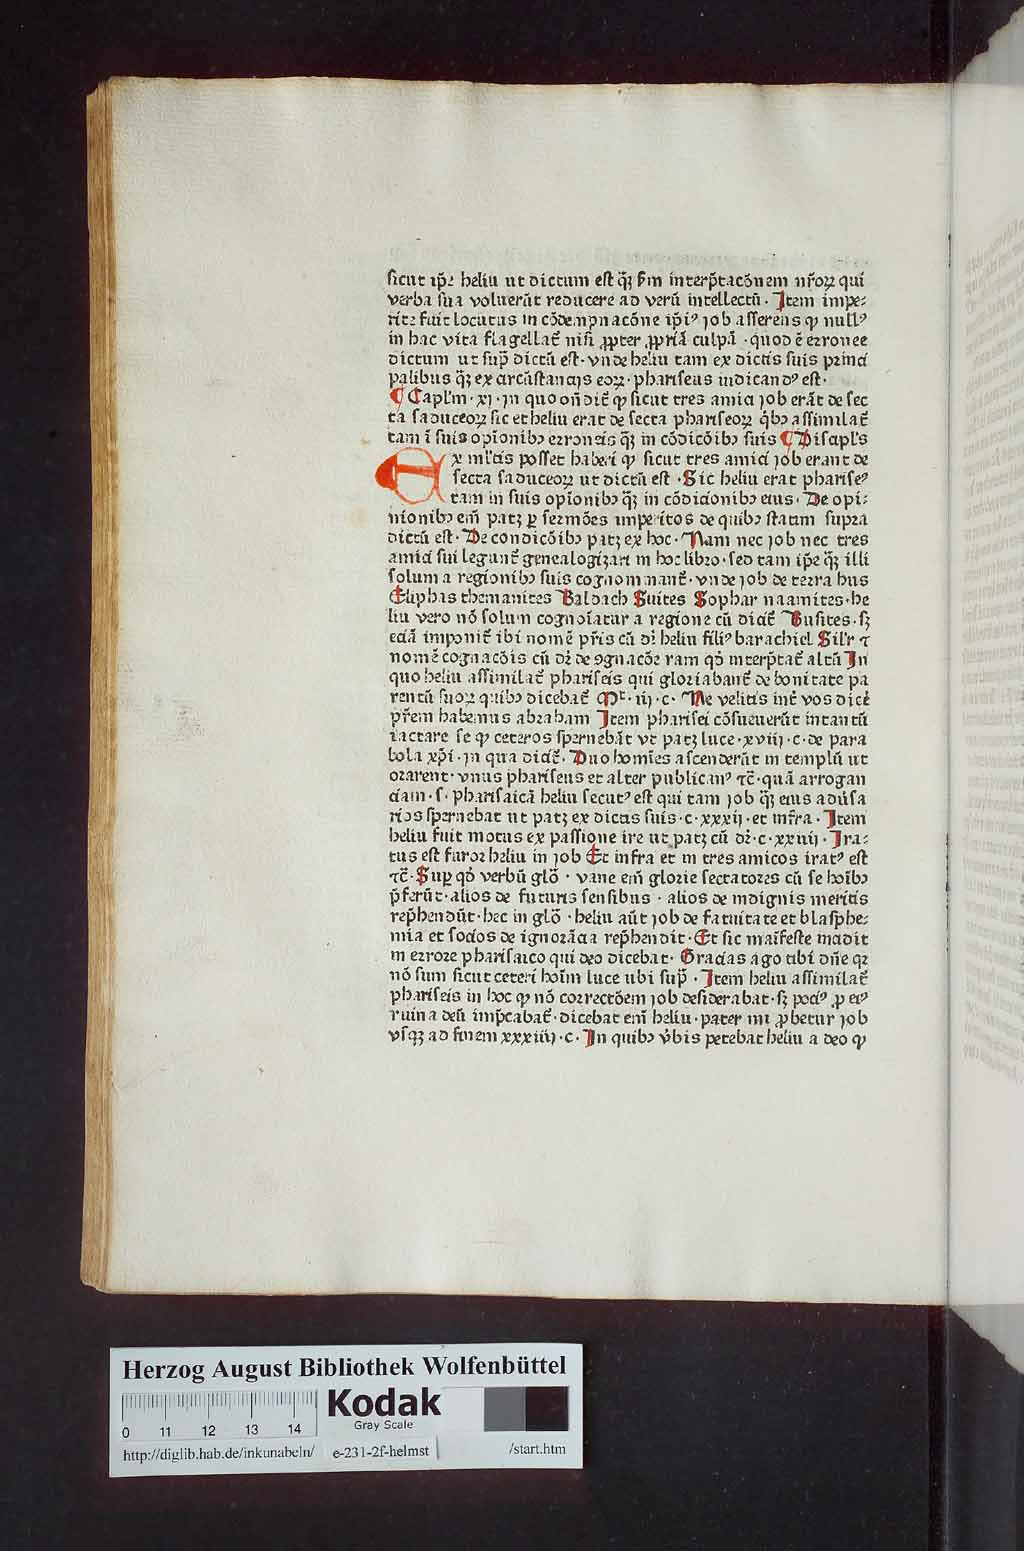 sicut ip̃e heliu ut dictum est q̃ꝫ ẜm interp̃tacõnem nr̃oꝝ qui
verba sua voluerũt reducere ad verũ intellectũ · Item impe⸗
rite fuit locutus in cõdempnacõne ip̃iꝰ job asserens ꝙ nullꝰ
in hac vita flagellat̃ nisi ꝓpter ꝓpriã culpã · quod ẽ erronee
dictum ut sup̃ dictũ est · vnde heliu tam ex dictis suis princi
palibus q̃ꝫ ex circũstancijs eoꝝ · phariseus iudicandꝰ est ·
¶ Capl̃m · xj · in quo oñdit̃ ꝙ sicut tres amici job erãt de sec
ta saduceoꝝ sic et heliu erat de secta phariseoꝝ q̃bꝫ assimilat̃
tam ĩ suis opĩonibꝫ erroneis q̃ꝫ in cõdicõibꝫ suis ¶ Discipl̃s
Ex mltis posset haberi ꝙ sicut tres amici job erant de
secta saduceoꝝ ut dictũ est · Sic heliu erat phariseꝰ
tam in suis opĩonibꝫ q̃ꝫ in cõdicionibꝫ eius · De opi⸗
nionibꝫ em̃ patꝫ ꝑ sermões imperitos de quibꝫ statim supra
dictũ est · De condicõibꝫ patꝫ ex hoc · Nam nec job nec tres
amici sui legunt̃ genealogizari in hoc libro · sed tam ip̃e q̃ꝫ illi
solum a regionibꝫ suis cognominant̃ · vnde job de terra hus
Eliphas themanites Baldach Suites Sophar naamites · he
liu vero nõ solum cognoĩatur a regione cũ dicit̃ Busites · sꝫ
eciã imponit̃ ibi nomẽ pr̃is cũ dr̃ heliu filiꝰ barachiel Silr̃ ⁊
nomẽ cognacõis cũ dr̃ de ꝯgnacõe ram qd̃ interp̃tat̃ altũ In
quo heliu assimilat̃ phariseis qui gloriabant̃ de bonitate pa
rentũ suoꝝ quibꝫ dicebat̃ Mt̃ · iij · c · Ne velitis int̃ vos dicẽ
pr̃em habemus abraham Item pharisei cõsueuerũt intantũ
iactare se ꝙ ceteros spernebãt vt patꝫ luce · xviij · c · de para
bola xp̃i · in qua dicit̃ · Duo homĩes ascenderũt in templũ ut
orarent · vnus phariseus et alter publicanꝰ ⁊c̃ · quã arrogan
ciam · s · pharisaicã heliu secutꝰ est qui tam job q̃ꝫ eius adũsa
rios spernebat ut patꝫ ex dictis suis · c · xxxij · et infra · Item
heliu fuit motus ex passione ire ut patꝫ cũ dr̃ · c · xxxiij · Ira⸗
tus est furor heliu in job Et infra et in tres amicos iratꝰ est
⁊c̃ · Suꝑ qd̃ verbũ glõ · vane em̃ glorie sectatores cũ se hoĩbꝫ
p̃ferũt · alios de futuris sensibus · alios de indignis meritis
rep̃hendũt · hec in glõ · heliu aũt job de fatuitate et blasphe⸗
mia et socios de ignorãcia rep̃hendit · Et sic maĩfeste incidit
in errore pharisaico qui deo dicebat · Gracias ago tibi dñe qꝛ
nõ sum sicut ceteri hoĩm luce ubi sup̃ · Item heliu assimilat̃
phariseis in hoc ꝙ nõ correctõem job desiderabat · sꝫ pociꝰ ꝓ eiꝰ
ruina deũ imp̃cabat̃ · dicebat em̃ heliu · pater mi ꝓbetur job
vsqꝫ ad finem xxxiiij · c · In quibꝫ v̓bis petebat heliu a deo ꝙ
Herzog August Bibliothek Wolfenbüttel
Kodak
Gray Scale
0 11 12 13 14
http://diglib.hab.de/inkunabeln/ e-231-2f-helmst /start.htm